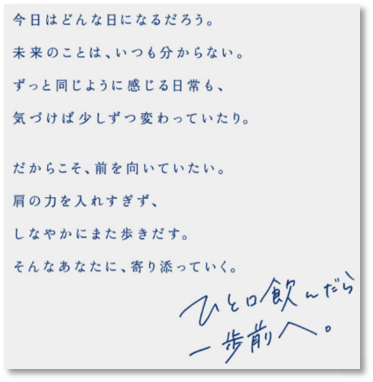 今日はどんな日になるだろう。
未来のことは、いつも分からない。
ずっと同じように感じる日常も、
気づけば少しずつ変わっていたり。
だからこそ、前を向いていたい。
肩の力を入れすぎず、
しなやかにまた歩きだす。
そんなあなたに、寄り添っていく。
ひと口飲んだら
一歩前へ。